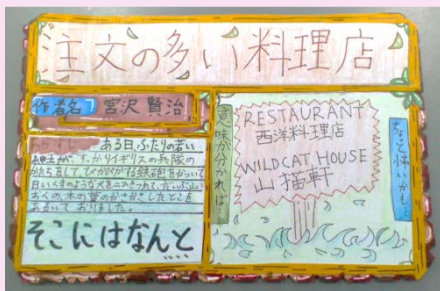 注文の多い料理店
作者名 宮沢 賢治
あらすじ ある日、ふたりの若い
紳士が、すっかりイギリスの兵隊の
かたちをして、ぴかぴかする鉄砲をかついで
白いくまのような犬を二ひきつれて、だいぶ山
おくの、木の葉のかさかさしたとこを
あるいておりました。
そこにはなんと
意味が分かれば…
RESTAURANT
西洋料理店
WILDCAT HOUSE
山猫軒
ちょっと怖いかも…